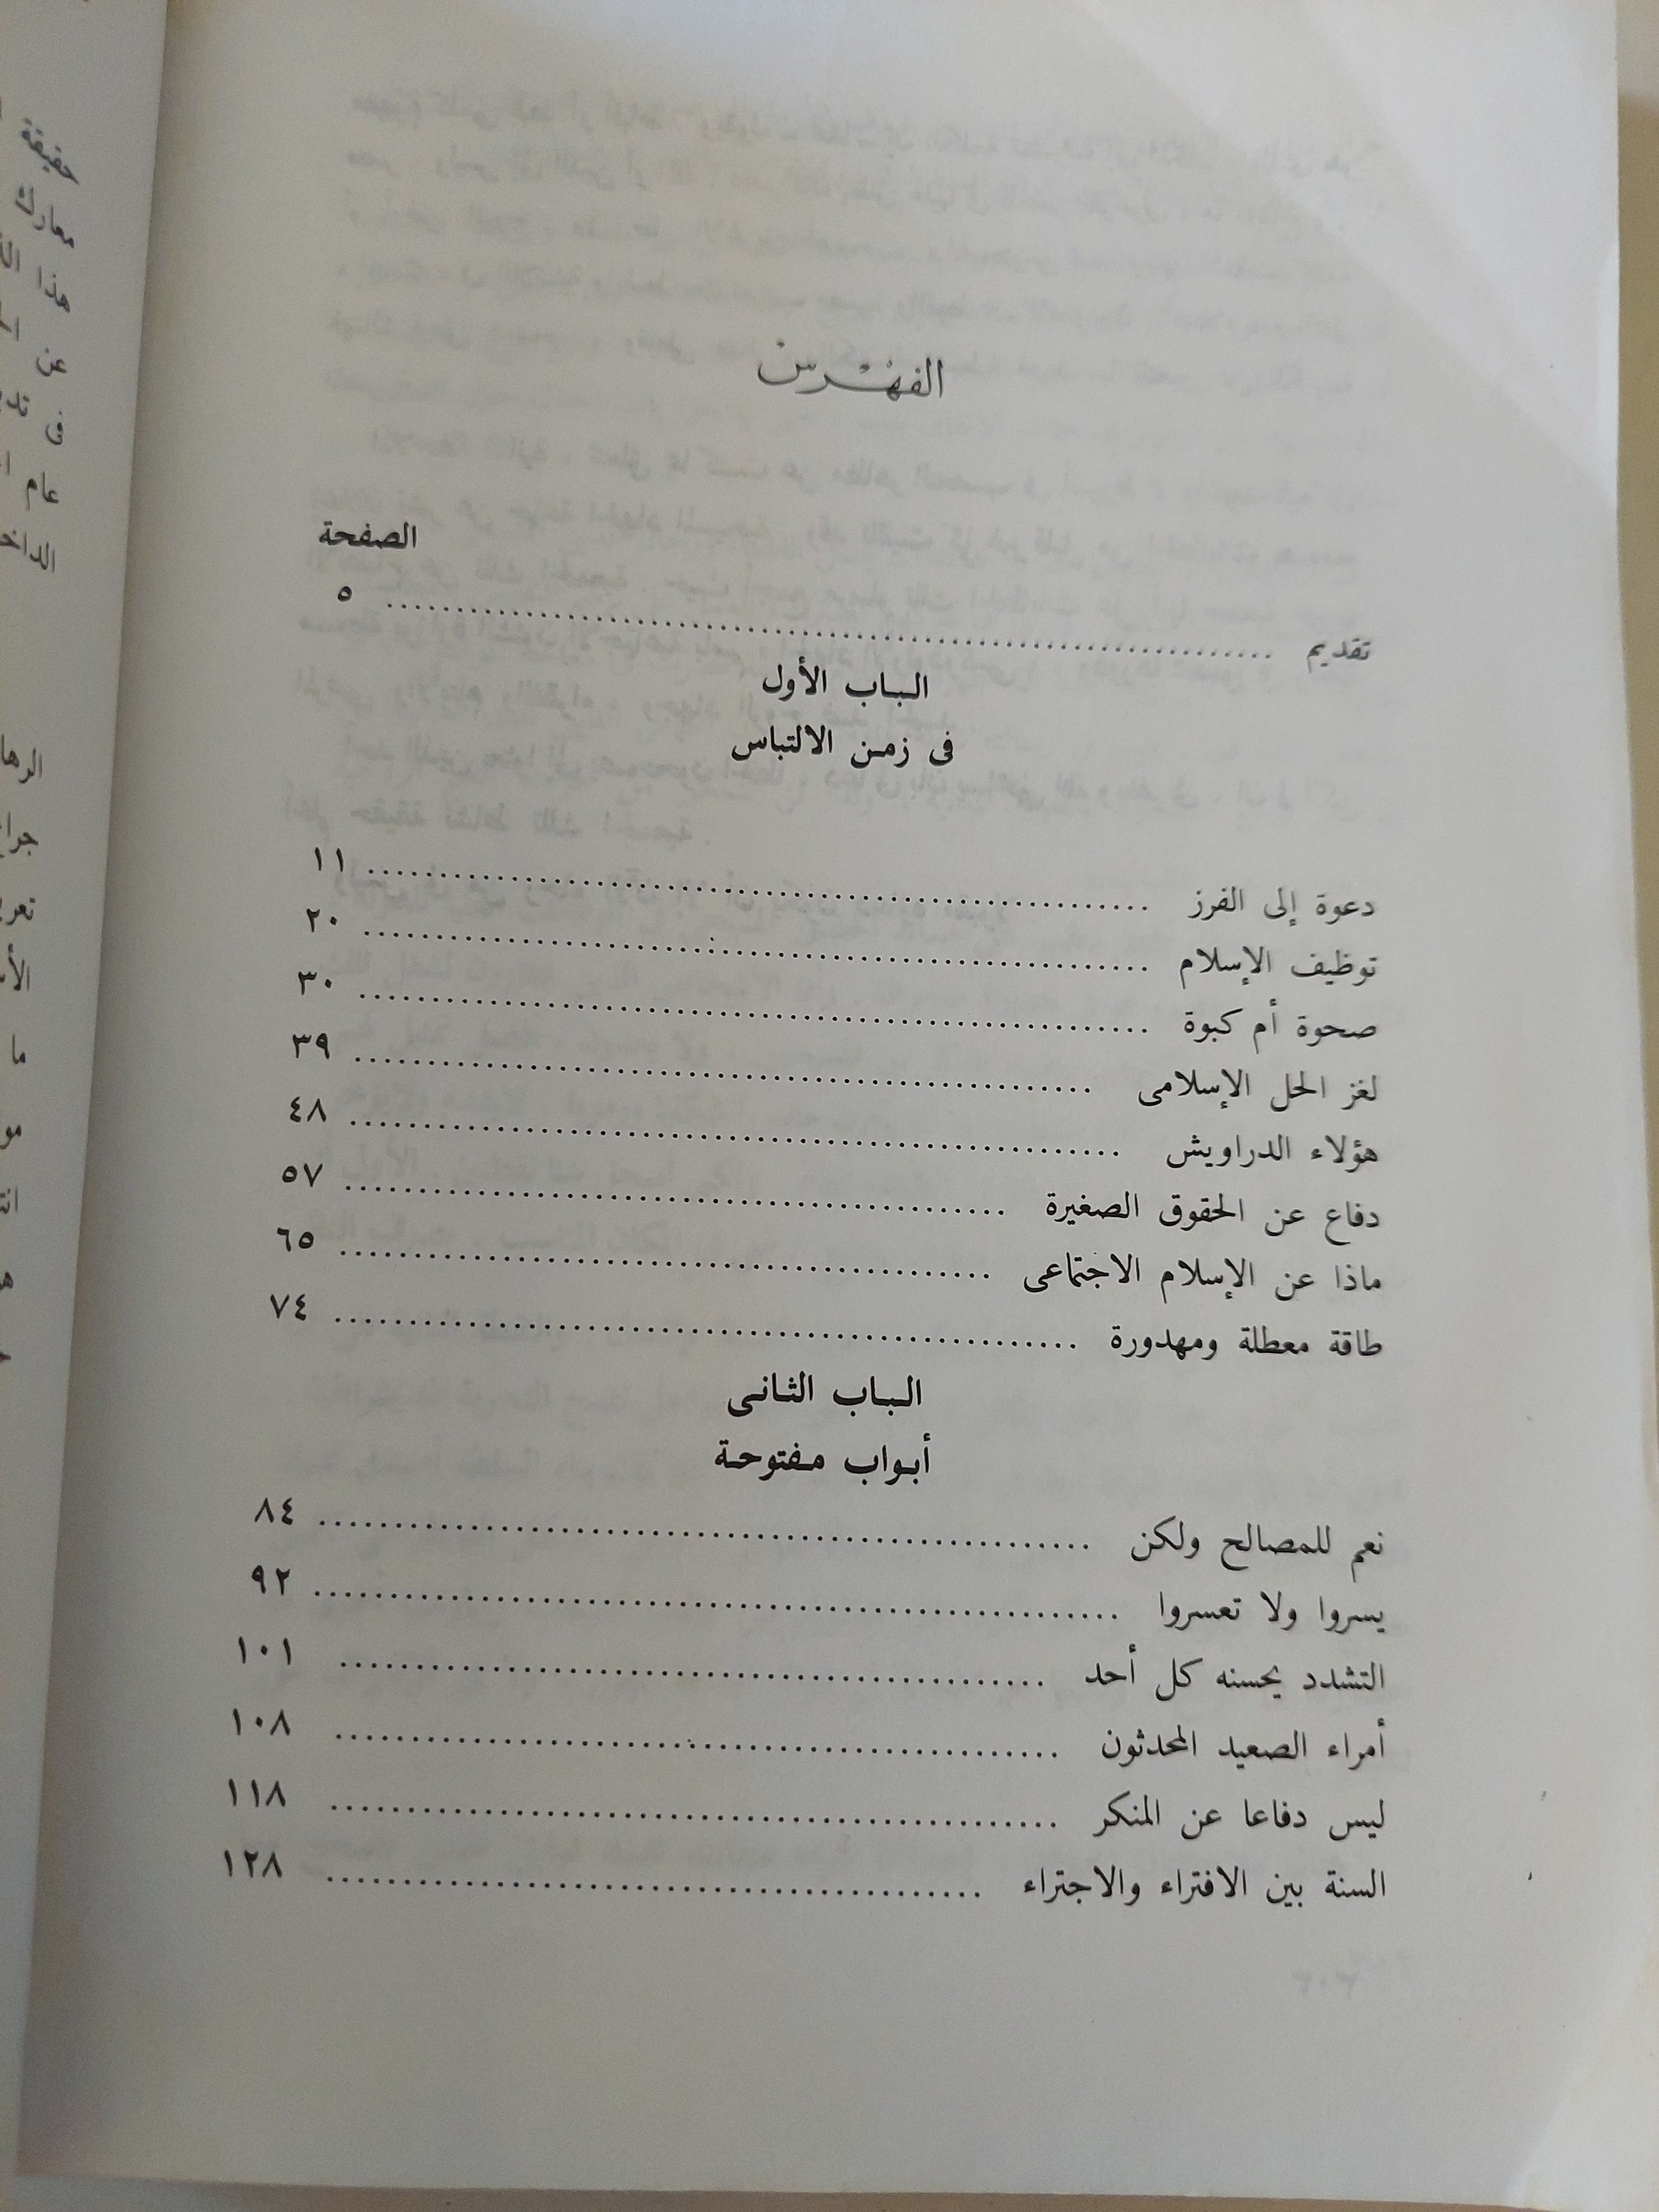 الفهرس
الصفحة
تقديم ........ ٥
الباب الأول
فى زمن الالتباس
دعوة إلى الفرز ........ ١١
توظيف الإسلام ........ ٢٠
صحوة أم كبوة ........ ٣٠
لغز الحل الإسلامى ........ ٣٩
هؤلاء الدراويش ........ ٤٨
دفاع عن الحقوق الصغيرة ........ ٥٧
ماذا عن الإسلام الاجتماعى ........ ٦٥
طاقة معطلة ومهدورة ........ ٧٤
الباب الثانى
أبواب مفتوحة
نعم للمصالح ولكن ........ ٨٤
يسروا ولا تعسروا ........ ٩٢
التشدد يحسنه كل أحد ........ ١٠١
أمراء الصعيد المحدثون ........ ١٠٨
ليس دفاعا عن المنكر ........ ١١٨
السنة بين الافتراء والاجتراء ........ ١٢٨
حقيقة
معارك
هذا
عن
فى
عام
ما